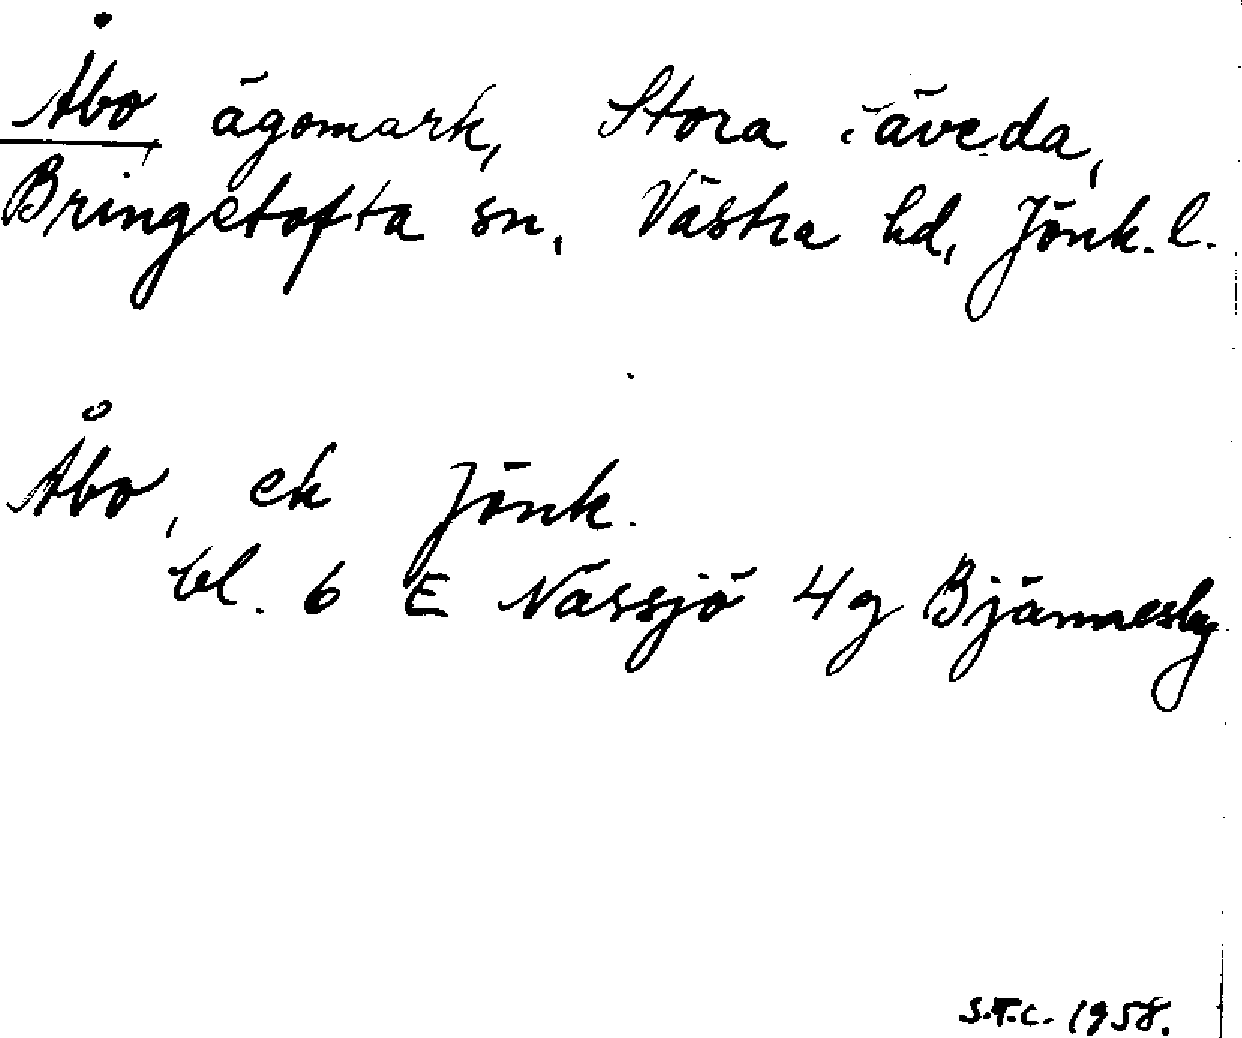 Åbo, ägomark, Stora äveda,
Bringetofta sn, Västra hd, Jönk. l.
Åbo, ek Jönk.
bl. 6 E Nässjö 4 g Bjärnnesby
S.F.C. 1958.